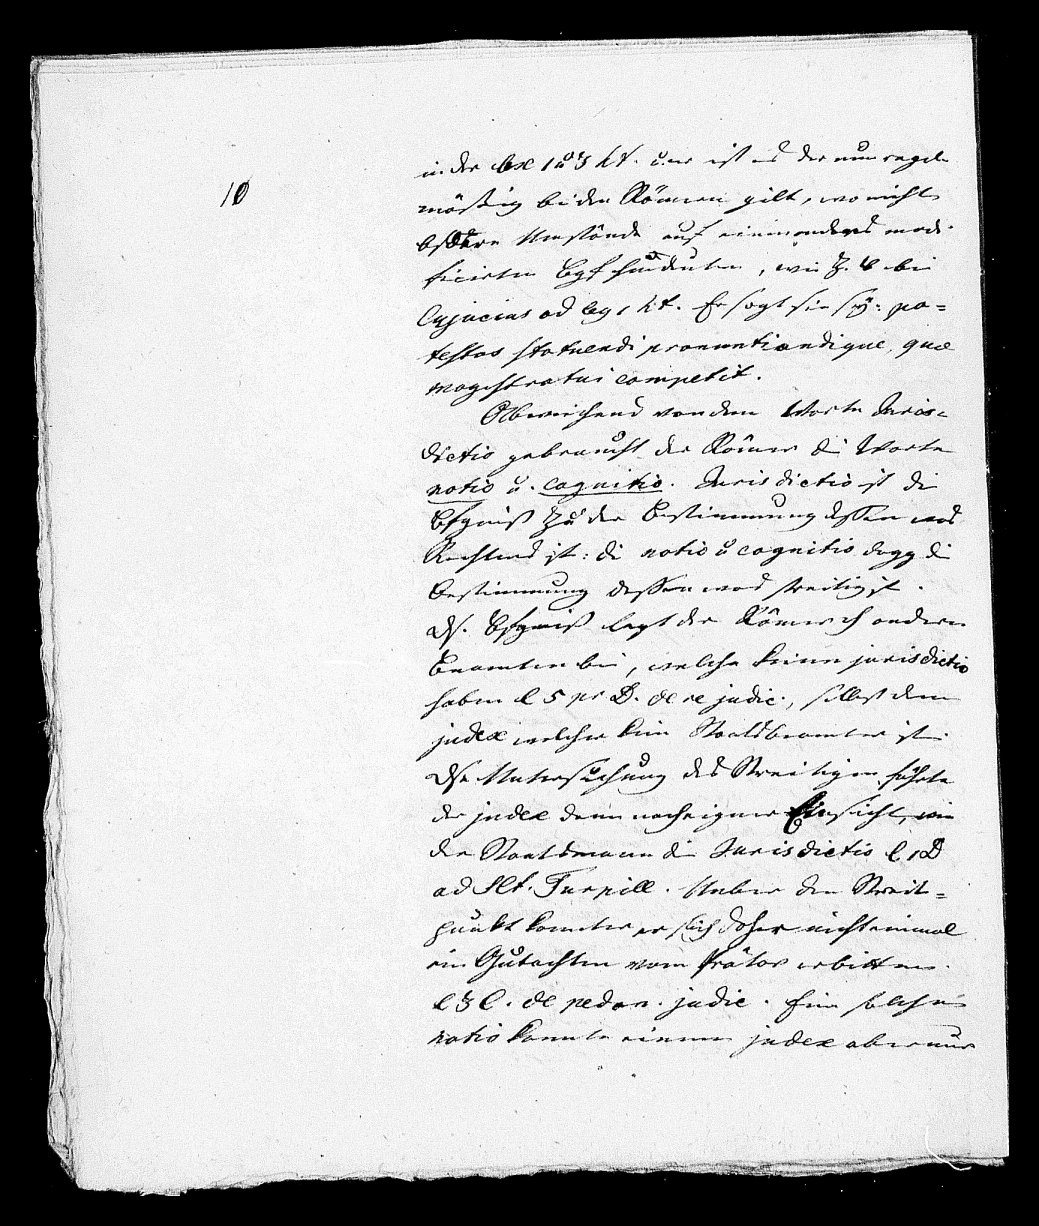 10
in der lex 1 u 3 h.t. u. er ist es der nun regel-
mäßig bei den Römern gilt, wo nicht
besdere Umstände auf einen anders modi-
ficirten Bgf hindeuten, wie z. B bei
Cujacius ad leg 1 h.t. Er sagt sie sey: po-
testas statuendi pronuntiandique, quae
magistratui competit.
Abweichend von dem Worte Juris-
dictio gebraucht der Römer die Worte
notio u. cognitio. Jurisdictio ist die
Bfgniß zu der Bestimmung dessen was
Rechtens ist: die notio u cognitio dagg die
Bestimmung dessen was streitig ist.
Ds. Bfgniß legt der Römer auch andern
Beamten bei, welche keine jurisdictio
haben l 5 pr D. de re judic., selbst dem
judex welcher kein Staatsbeamter ist.
Dse Untersuchung des Streitigen führte
der judex denn nach eigner Einsicht, wie
der Staatsmann die Jurisdictio l 1 D
ad SCt. Turpill. Ueber den Streit-
punkt konnte er sich daher nicht einmal
ein Gutachten vom Prätor erbitten.
l 3 C. de pedan. judic. Eine solche
notio konnte einem judex aber nur